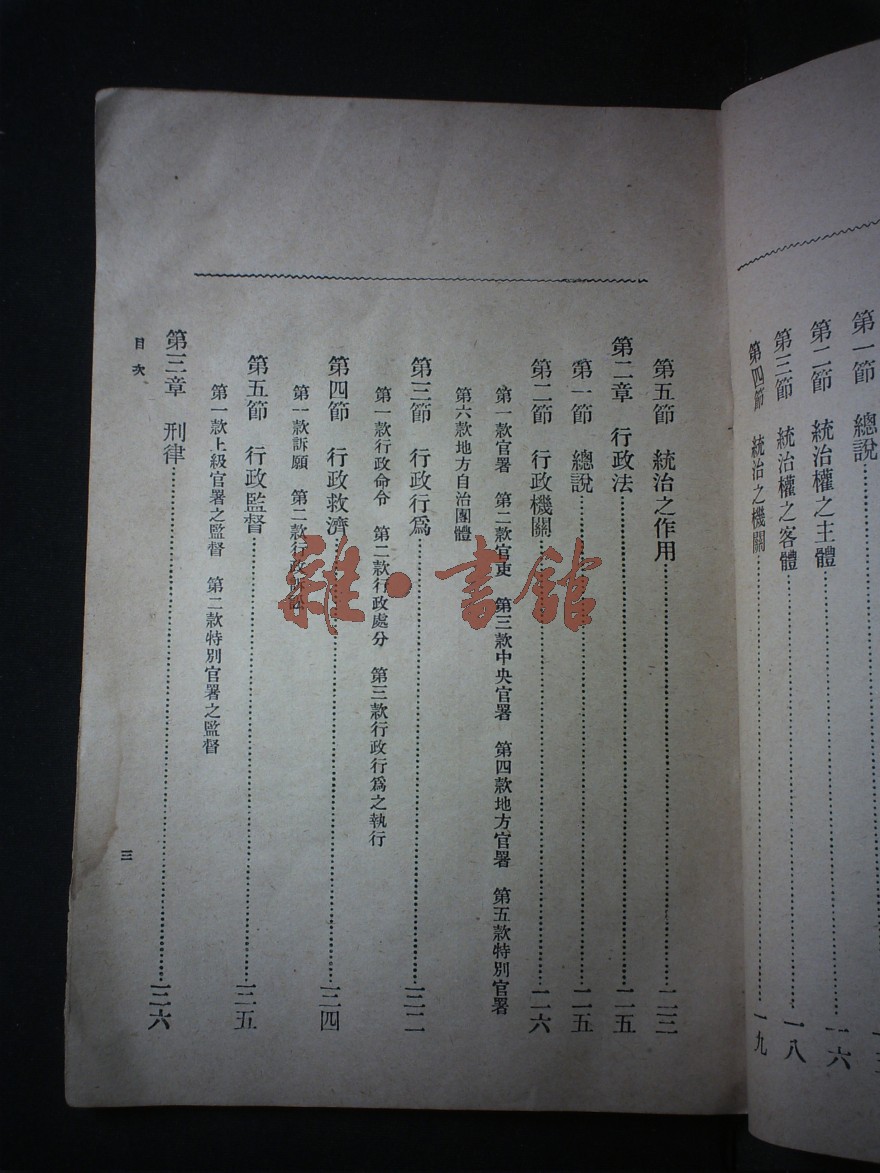 第一節　總說
第二節　統治權之主體……一六
第三節　統治權之客體……一八
第四節　統治之機關……一九
第五節　統治之作用……二三
第二章　行政法……二五
第一節　總說……二五
第二節　行政機關……二六
第一款官署　第二款官吏　第三款中央官署　第四款地方官署　第五款特別官署
第六款地方自治團體
第三節　行政行爲……三二
第一款行政命令　第二款行政處分　第三款行政行爲之執行
第四節　行政救濟……三四
第一款訴願　第二款行政訴訟
第五節　行政監督……三五
第一款上級官署之監督　第二款特別官署之監督
第三章　刑律……三六
目次
三
雜·書館